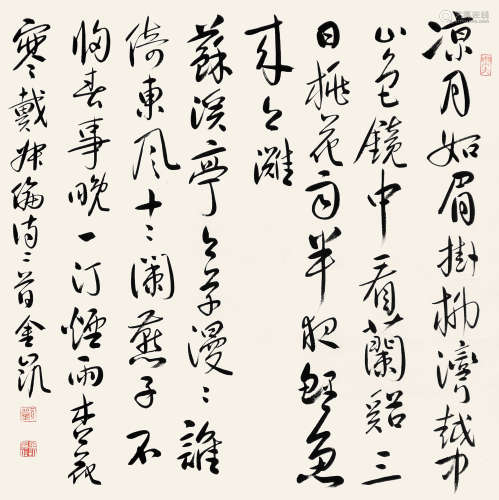 凉月如眉掛柳灣越中
山色鏡中看蘭谿三
日桃花雨半夜鯉魚
来上灘
蘇溪亭上草漫漫誰
倚東風十二闌燕子不
歸春事晚一汀煙雨杏花
寒戴叔倫詩二首金凱